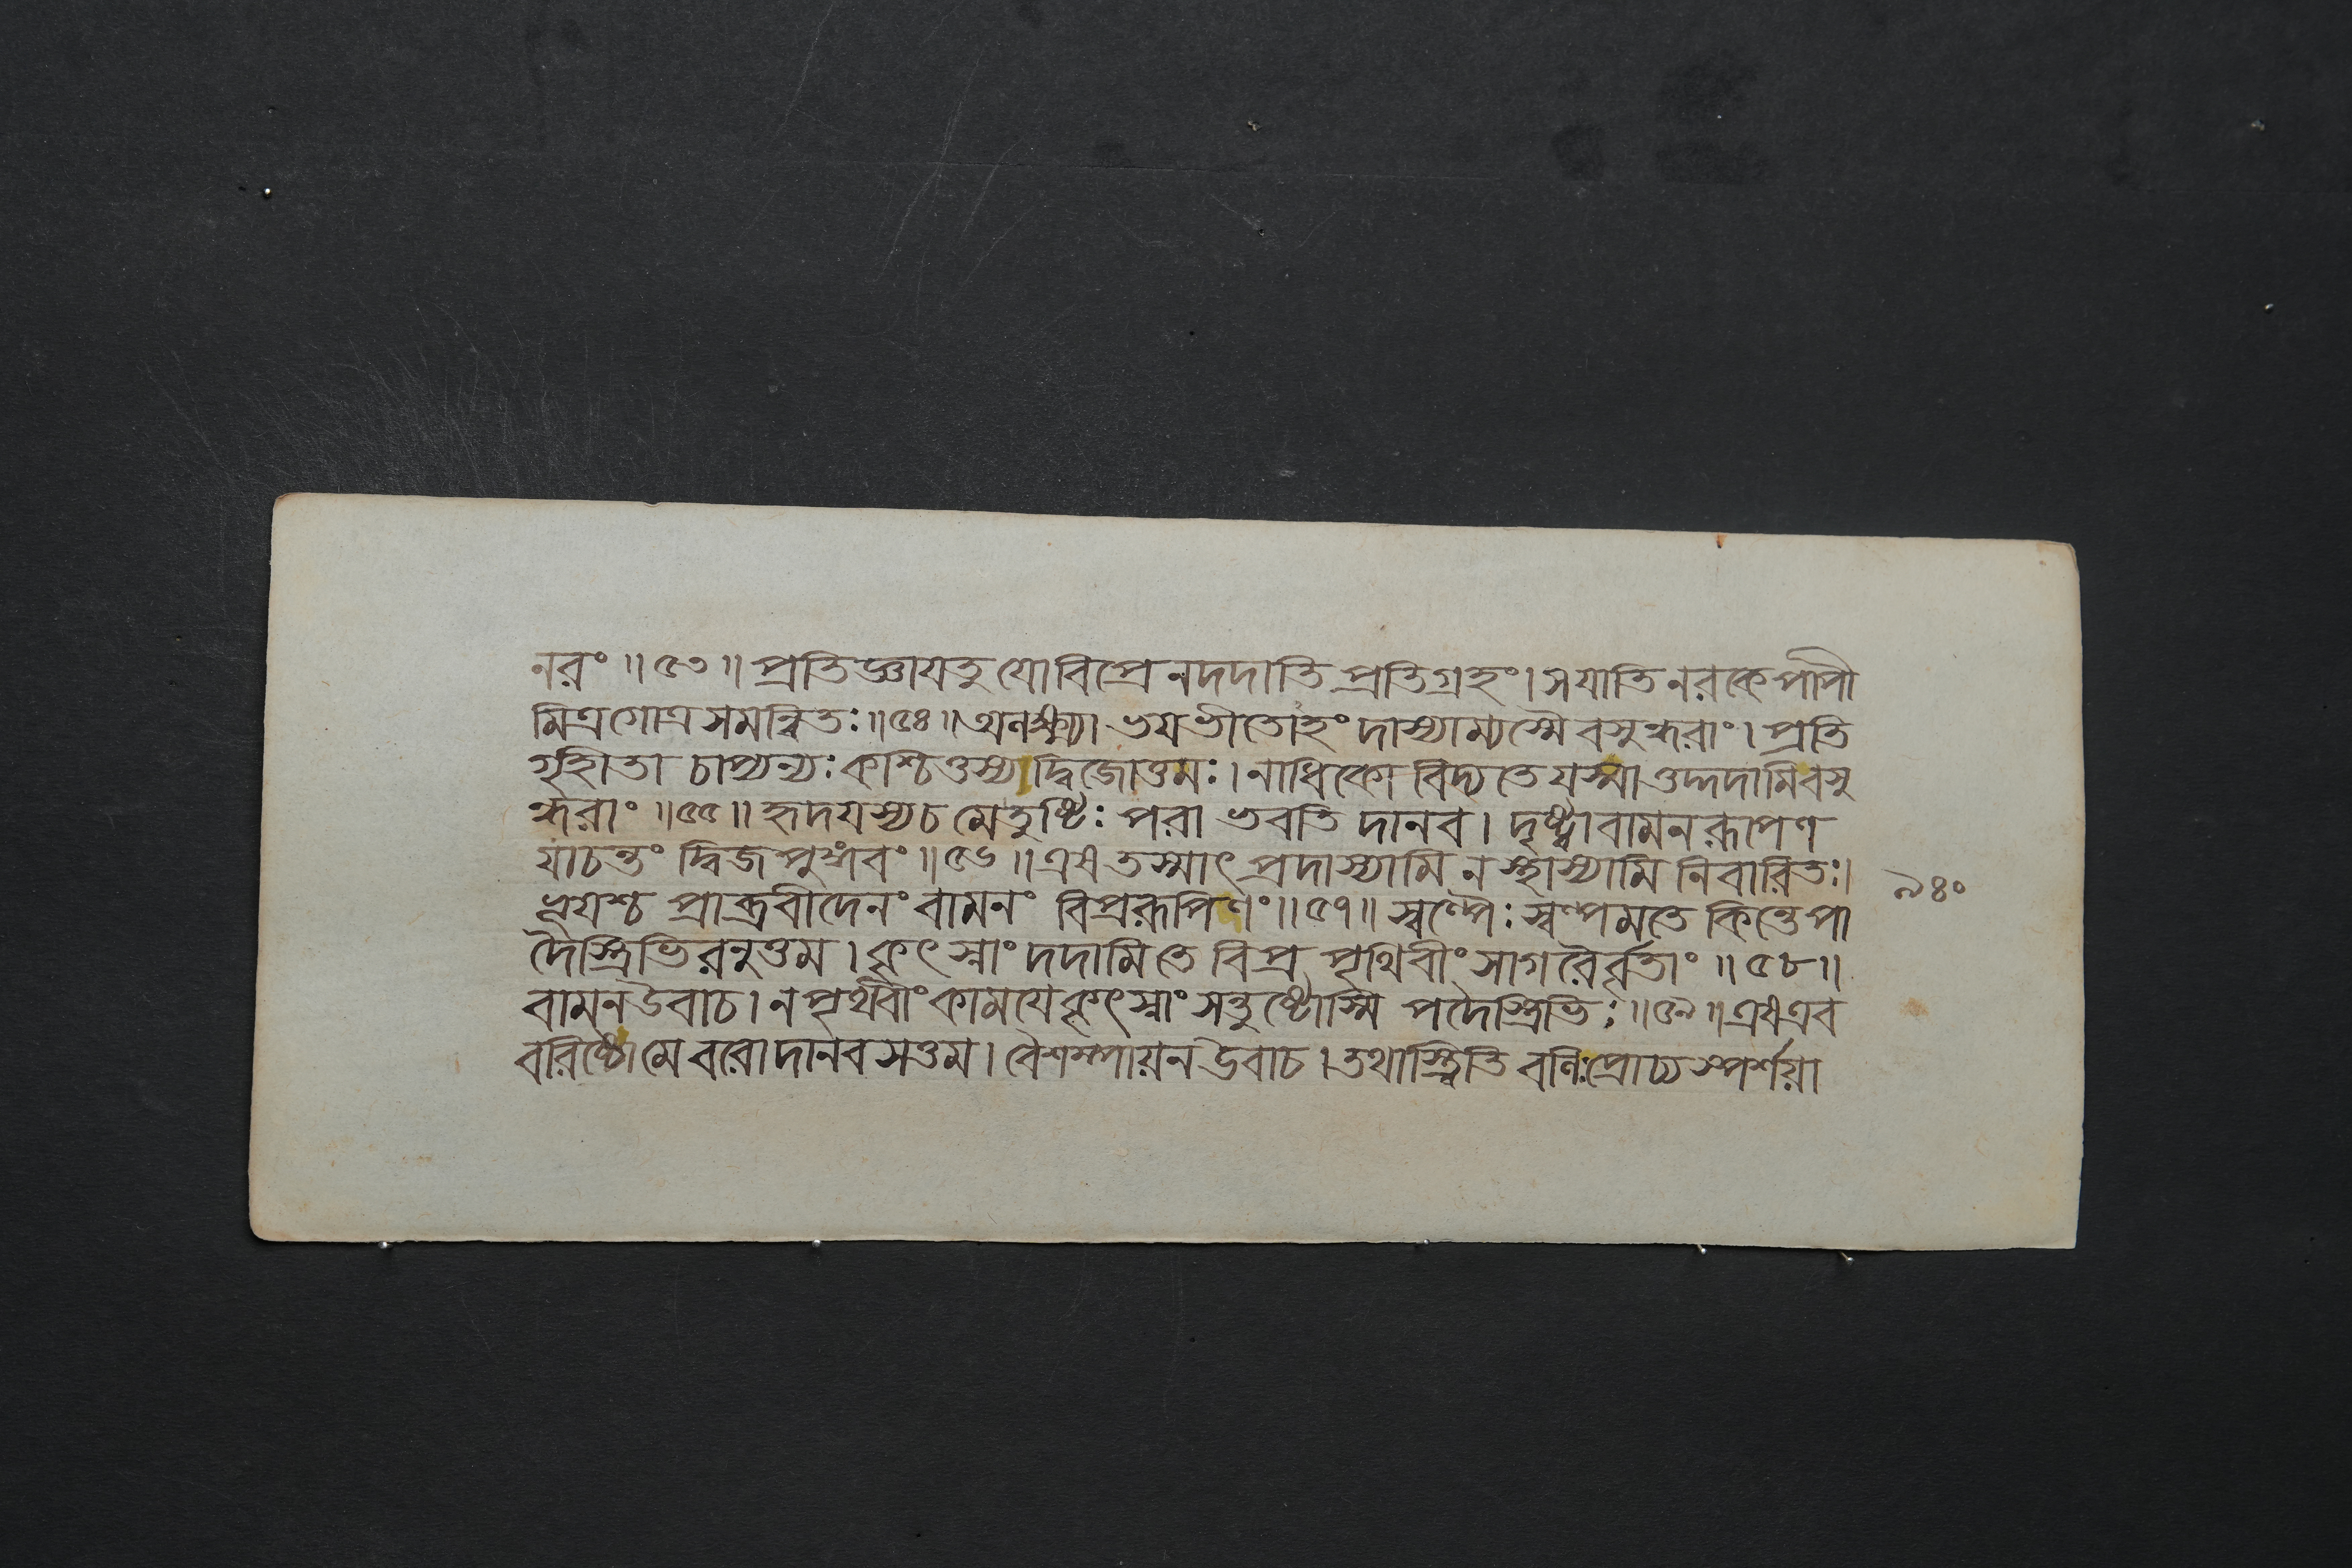 নরং ॥ ৫৩ ॥ প্রতিজ্ঞাযতু যোবিপ্রেনদদাতি প্রতিগ্রহং। সযাতি নরকে পাপী
মিত্রগোত্রসমন্বিতঃ ॥ ৫৪ ॥ অলক্ষ্ম্যা ভযভীতোহং দাস্যাম্যস্মৈ বসুন্ধরাং। প্রতি
গৃহীতা চাপ্যন্যঃ কশ্চিত্তস্যাদ্দ্বিজোত্তমঃ। নাধিকো বিদ্যতে যস্মাত্তদ্দদামি বসু
ন্ধরাং ॥ ৫৫ ॥ হৃদযস্যচ মেতুষ্টিঃ পরা ভবতি দানব। দৃষ্ট্বা বামনরূপেণ
যাচন্তং দ্বিজপুঙ্গবং ॥ ৫৬ ॥ এষ তস্মাৎ প্রদাস্যামি ন স্থাস্যামি নিবারিতঃ।
ভূযশ্চ প্রাব্রবীদেনং বামনং বিপ্ররূপিণং ॥ ৫৭ ॥ স্বল্পৈঃ স্বল্পমতে কিন্তে পা
দৈস্ত্রিভিরনুত্তম। কৃৎস্নাং দদামি তে বিপ্র পৃথিবীং সাগরৈর্বৃতাং ॥ ৫৮ ॥
বামন উবাচ। ন পৃথিবীং কামযে কৃৎস্নাং সন্তুষ্টোস্মি পদৈস্ত্রিভিঃ ॥ ৫৯ ॥ এষএব
বরিষ্টো মে বরো দানবসত্তম। বৈশম্পায়ন উবাচ। তথাস্ত্বিতি বলিঃ প্রোচ্য স্পর্শয়া
৯৪০